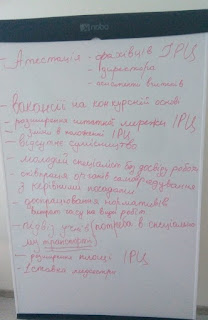 nobo
- Атестація - фахівців ІРЦ
- директорів
- асистентів вчителів
Вакансії на конкурсній основі
- розширення штатної мережі ІРЦ
- зміни в положенні ІРЦ
- відсутнє сумісництво
- молодий спеціаліст без досвіду роботи
- співпраця органів самоврядування
з керівними посадами
- доопрацювання нормативів
витрат часу на види робіт
- підвіз учнів (потреба в спеціально
му транспорті)
- розширення площі ІРЦ
- 1 ставка